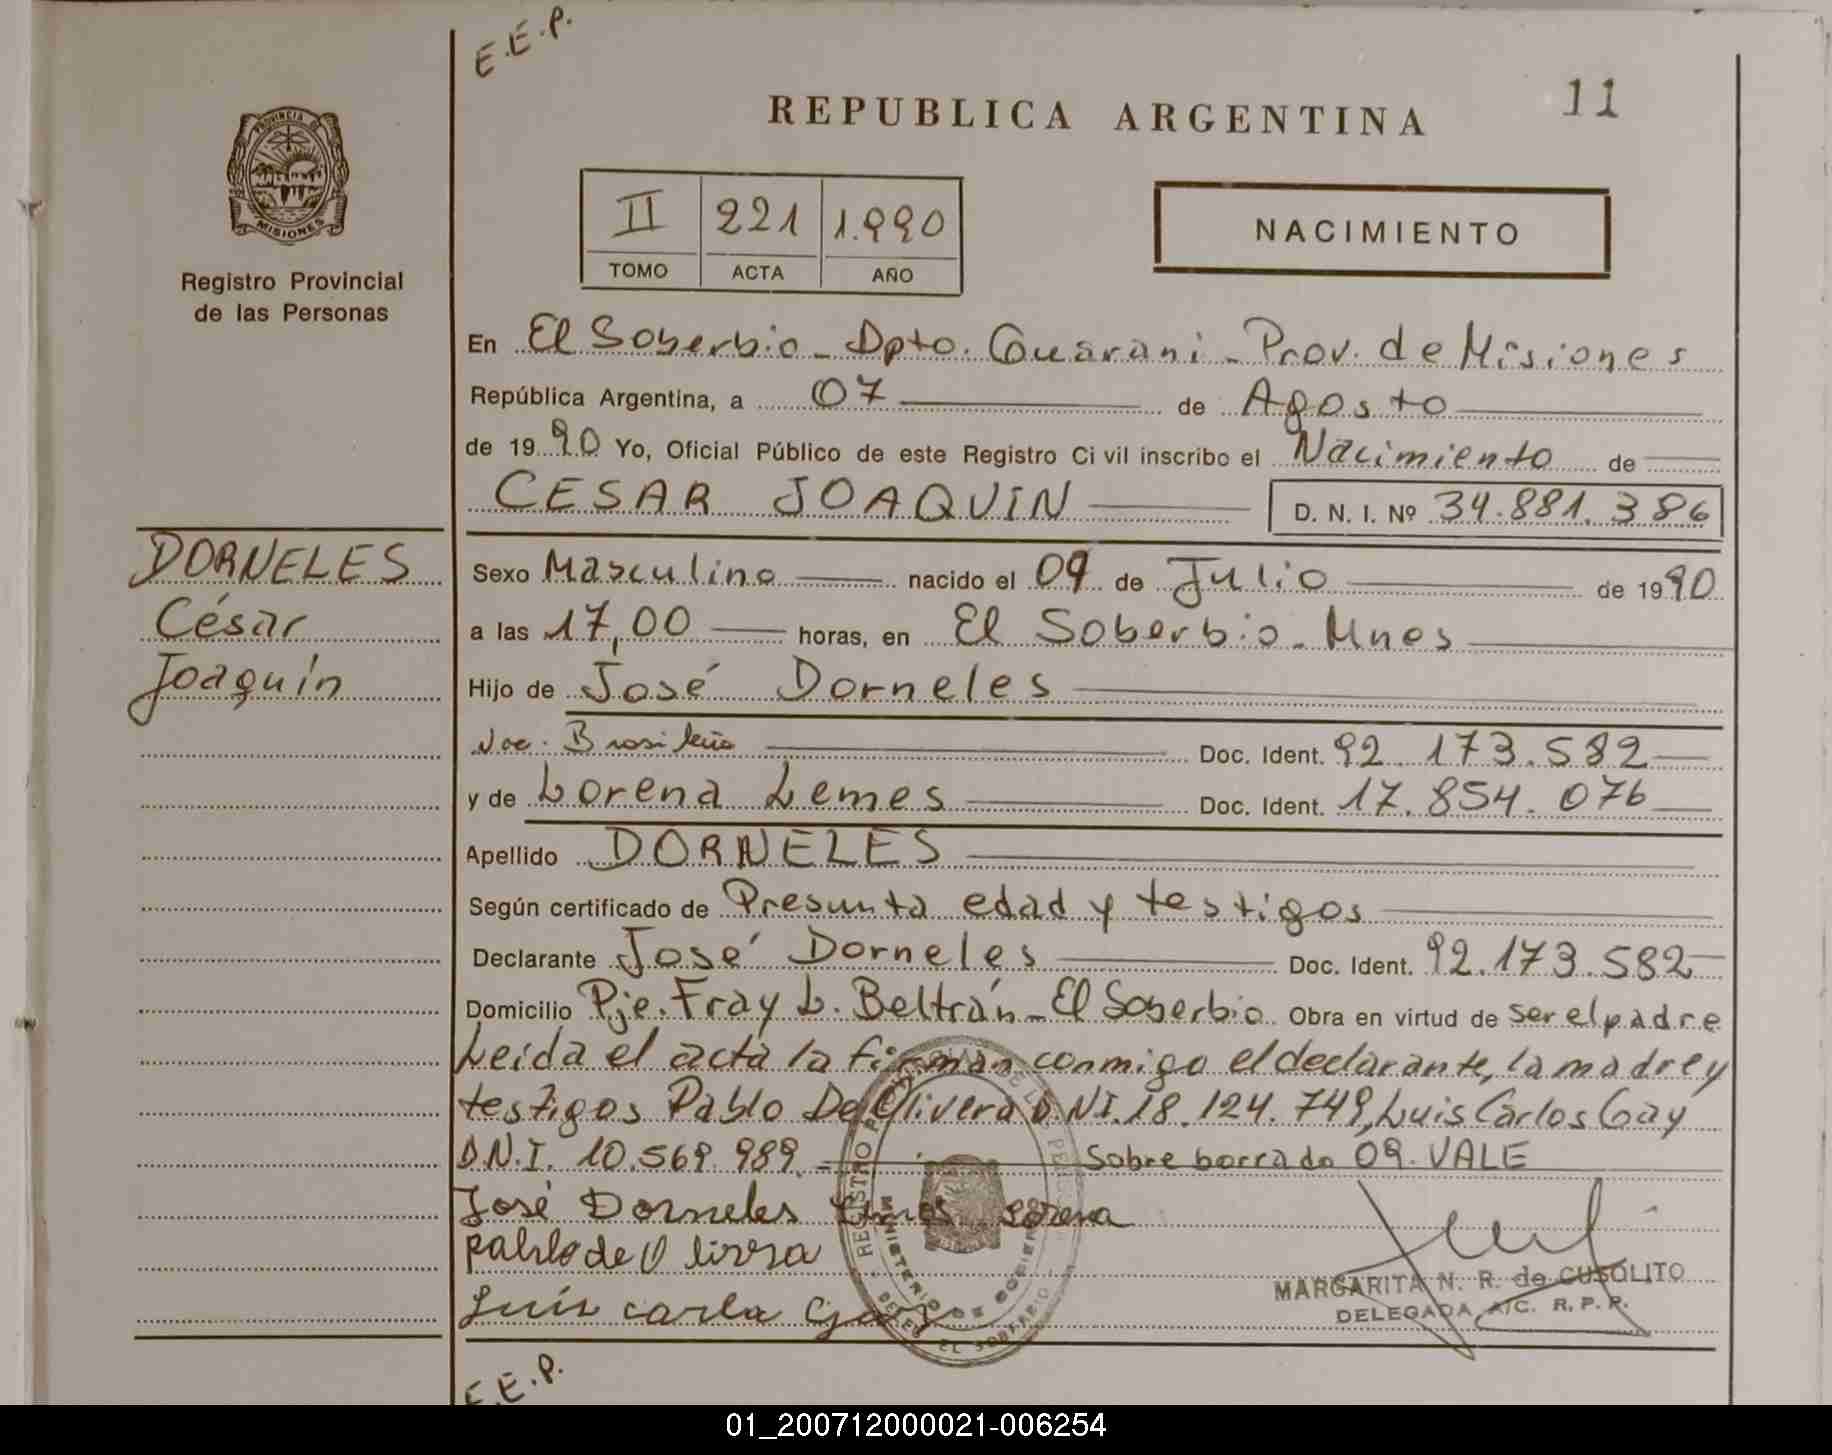 E.E.P.
11
REPUBLICA ARGENTINA
PROVINCIA D
MISIONES
Registro Provincial
de las Personas
II 221 1.990
TOMO ACTA AÑO
NACIMIENTO
En El Soberbio - Dpto. Guarani - Prov. de Misiones
República Argentina, a 07 de Agosto
de 1990 Yo, Oficial Público de este Registro Civil inscribo el Nacimiento de
CESAR JOAQUIN D. N. I. Nº 34.881.386
DORNELES
César
Joaquín
Sexo Masculino nacido el 09 de Julio de 1990
a las 17,00 horas, en El Soberbio - Mnes
Hijo de José Dorneles
Nac. Brasileño Doc. Ident. 92.173.582
y de Lorena Lemes Doc. Ident. 17.854.076
Apellido DORNELES
Según certificado de Presunta edad y testigos
Declarante José Dorneles Doc. Ident. 92.173.582
Domicilio Pje. Fray L. Beltrán - El Soberbio Obra en virtud de ser el padre
Leida el acta la firman conmigo el declarante, la madre y
testigos Pablo De Olivera D.N.I. 18.124.749, Luis Carlos Gay
D.N.I. 10.569.989 Sobre borrado 09. VALE
José Dorneles Lemes Lorena
Pablo de Olivera
Luis carlo Gay
REGISTRO
MINISTERIO DE GOBIER
EL SOBERBIO
MARGARITA N. R. de CUSOLITO
DELEGADA A/C. R. P. P.
E.E.P.
01_200712000021-006254